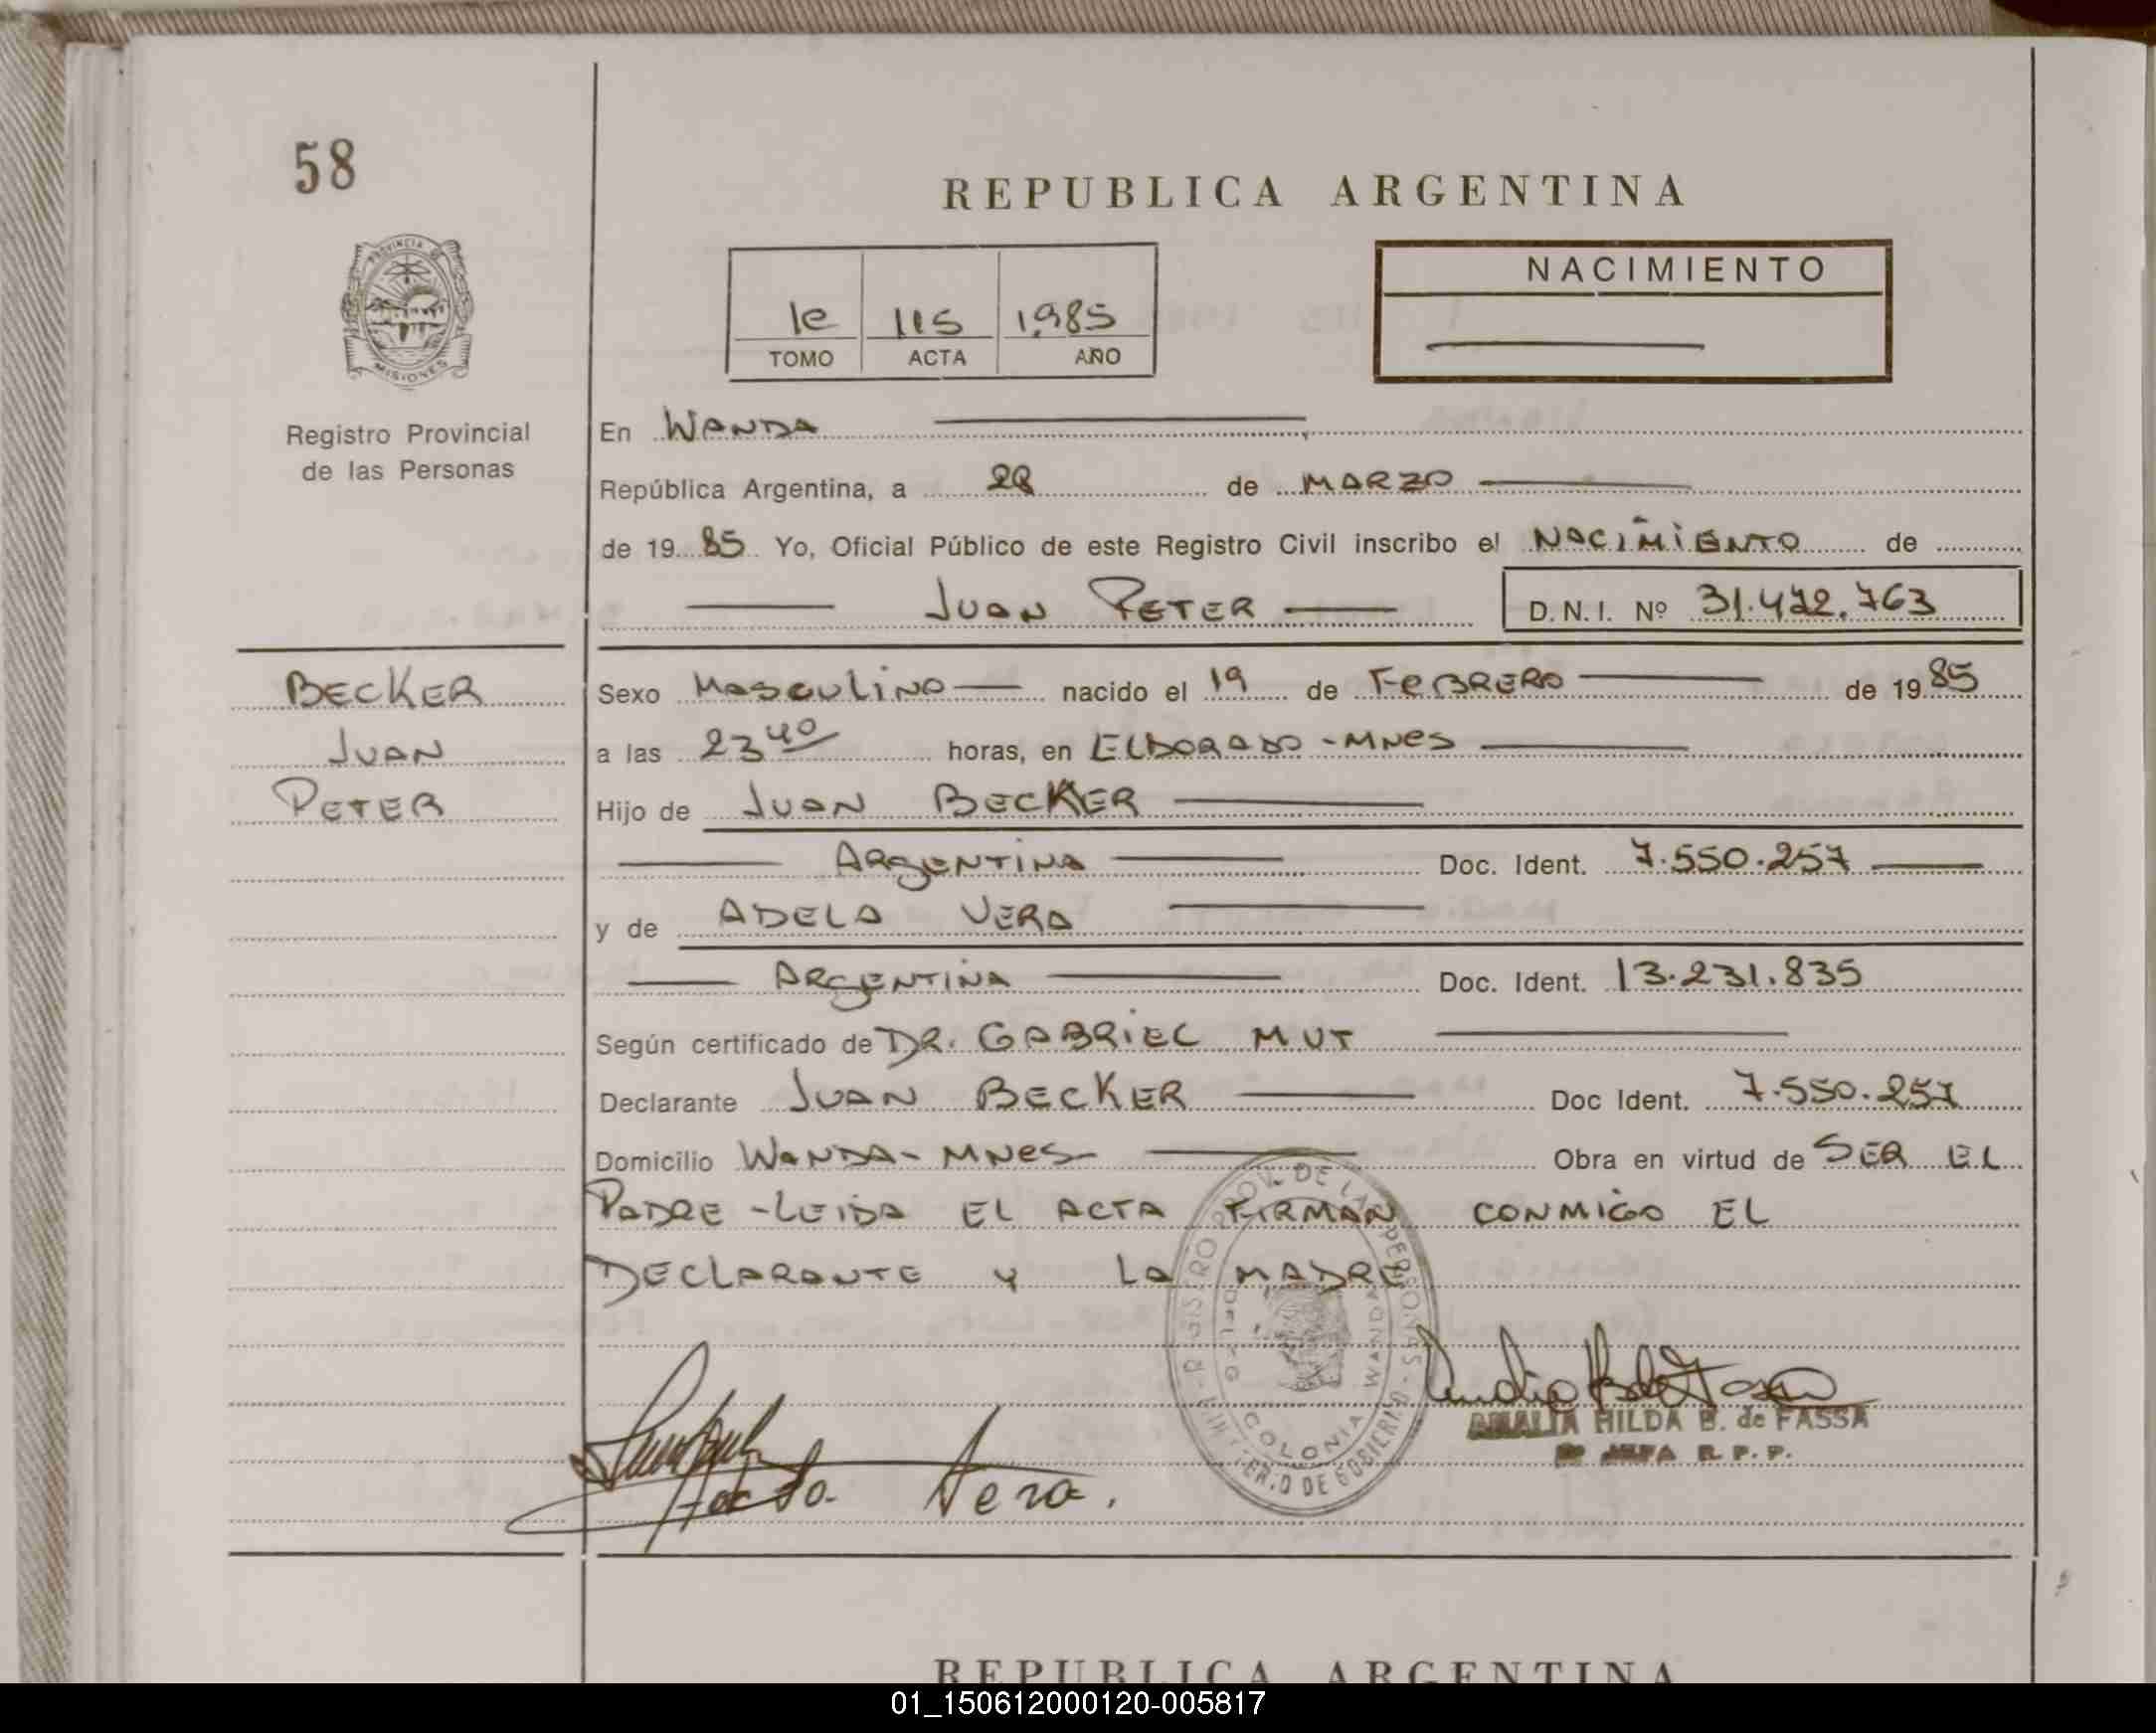 58
REPUBLICA ARGENTINA
PROVINCIA DE
MISIONES
Registro Provincial
de las Personas
1e 115 1985
TOMO ACTA AÑO
NACIMIENTO
En WANDA
República Argentina, a de MARZO
de 1985 Yo, Oficial Público de este Registro Civil inscribo el NACIMIENTO de
JUAN PETER D.N.I. Nº 31.472.763
BECKER
JUAN
PETER
Sexo MASCULINO nacido el 19 de FEBRERO de 1985
a las 23 40 horas, en ELDORADO - MNES
Hijo de JUAN BECKER
ARGENTINA Doc. Ident. 7.550.257
y de ADELA VERA
ARGENTINA Doc. Ident. 13.231.835
Según certificado de DR. GABRIEL MUT
Declarante JUAN BECKER Doc Ident. 7.550.257
Domicilio WANDA - MNES Obra en virtud de SER EL
PADRE - LEIDA EL ACTA FIRMAN CONMIGO EL
DECLARANTE Y LA MADRE
REGISTRO PROV. DE LAS PERSONAS
COLONIA WANDA
AMALIA HILDA B. de FASSA
JEFA R. P. P.
Vera.
REPUBLICA ARGENTINA
01_150612000120-005817